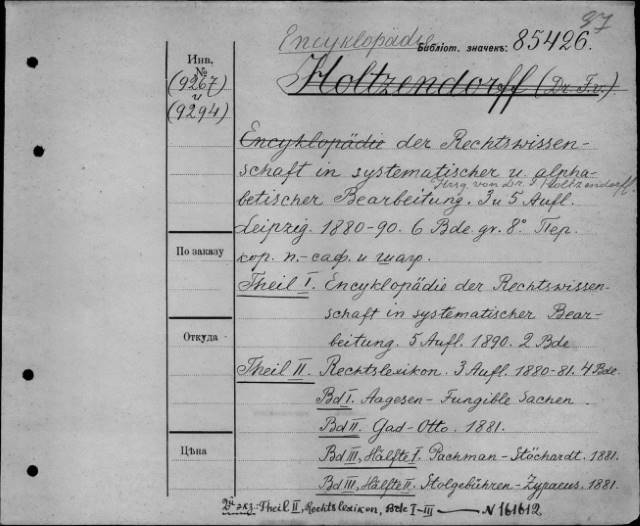 27
Encyklopädie
Библіот. значекъ: 85426.
Holtzendorff (Dr. Fr. v.)
Инв.
№
(9267)
и
(9294)
Encyklopädie der Rechtswissen-
schaft in systematischer u. alpha-
Hrsg. von Dr. Holtzendorff.
betischer Bearbeitung. 3 u 5 Aufl.
Leipzig. 1880-90. 6 Bde. gr. 8° Пер.
кор. п.-саф. и шагр.
По заказу
Theil I. Encyklopädie der Rechtswissen-
schaft in systematischer Bear-
beitung. 5 Aufl. 1890. 2 Bde
Откуда
Theil II. Rechtslexikon. 3 Aufl. 1880-81. 4 Bde.
Bd I. Aagesen - Fungible Sachen
Bd II. Gad - Otto. 1881.
Цѣна
Bd III, Hälfte I. Pachman - Stöchardt. 1881.
Bd III, Hälfte II. Stolgebühren - Zypaeus. 1881.
2й экз. Theil II, Rechtslexikon, Bde I-III — N 161612